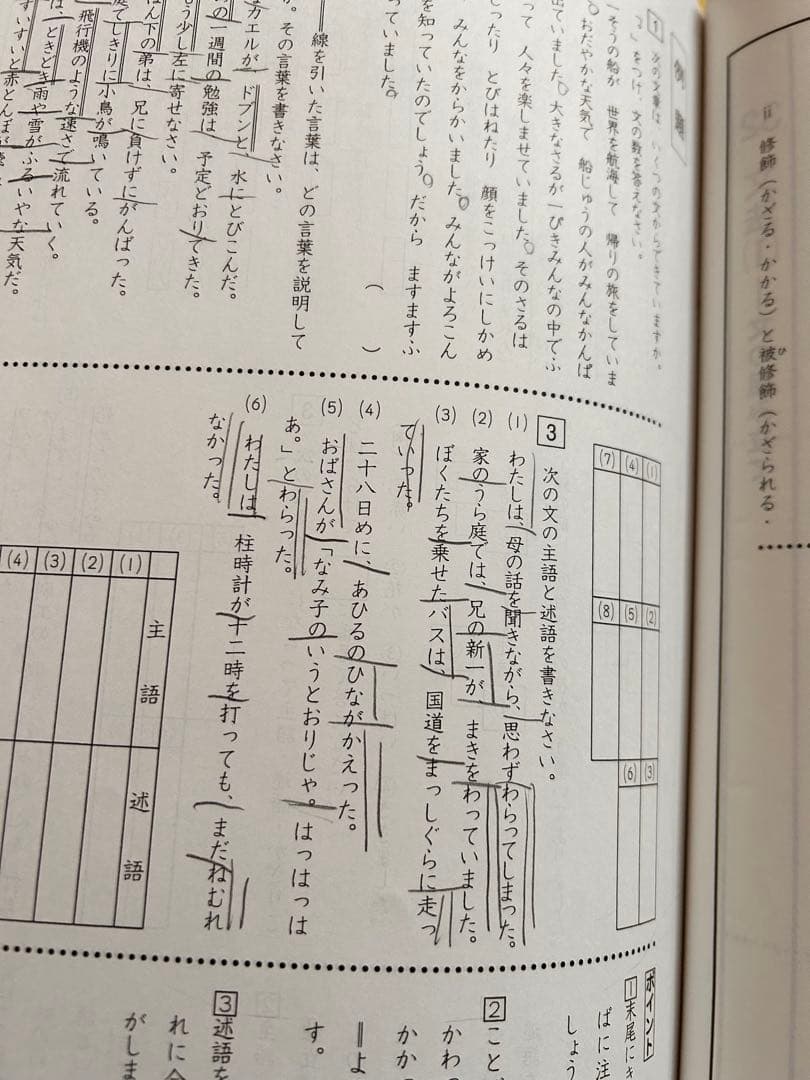 ii 修飾(かざる・かかる)と被修飾(かざられる・
例題
1 次の文章は、いくつの文からできていますか。
。」をつけ、文の数を答えなさい。
そうの船が 世界を航海して 帰りの旅をしていま
おだやかな天気で 船じゅうの人がみんなかんぱ
出ていました。大きなさるが一ぴきみんなの中でふ
って 人々を楽しませていました。そのさるは
じったり とびはねたり 顔をこっけいにしかめ
みんなをからかいました。みんながよろこん
を知っていたのでしょう。だから ますますふ
っていました。
( )
線を引いた言葉は、どの言葉を説明して
か。その言葉を書きなさい。
なカエルが ドブンと、水にとびこんだ。
の一週間の勉強は 予定どおりできた。
もう少し左に寄せなさい。
ほん下の弟は、兄に負けずにがんばった。
庭でしきりに小鳥が鳴いている。
飛行機のような速さで流れていく。
は、ときどき雨や雪がふるいやな天気だ。
すいすいと赤とんぼが
(1) (2) (3)
(4) (5) (6)
(7) (8)
3 次の文の主語と述語を書きなさい。
(1) わたしは、母の話を聞きながら、思わずわらってしまった。
(2) 家のうら庭では、兄の新一が、まきをわっていました。
(3) ぼくたちを乗せたバスは、国道をまっしぐらに走っ
ていった。
(4) 二十八日めに、あひるのひながかえった。
(5) おばさんが「なみ子のいうとおりじゃ。はっはっは
あ。」とわらった。
(6) わたしは、柱時計が十二時を打っても、まだねむれ
なかった。
主語 述語
(1)
(2)
(3)
(4)
ポイント
1 末尾に
ばに注
しょう
2 こと、
かわっ
かか
＝よ
す。
3 述語を
れに合
がしま